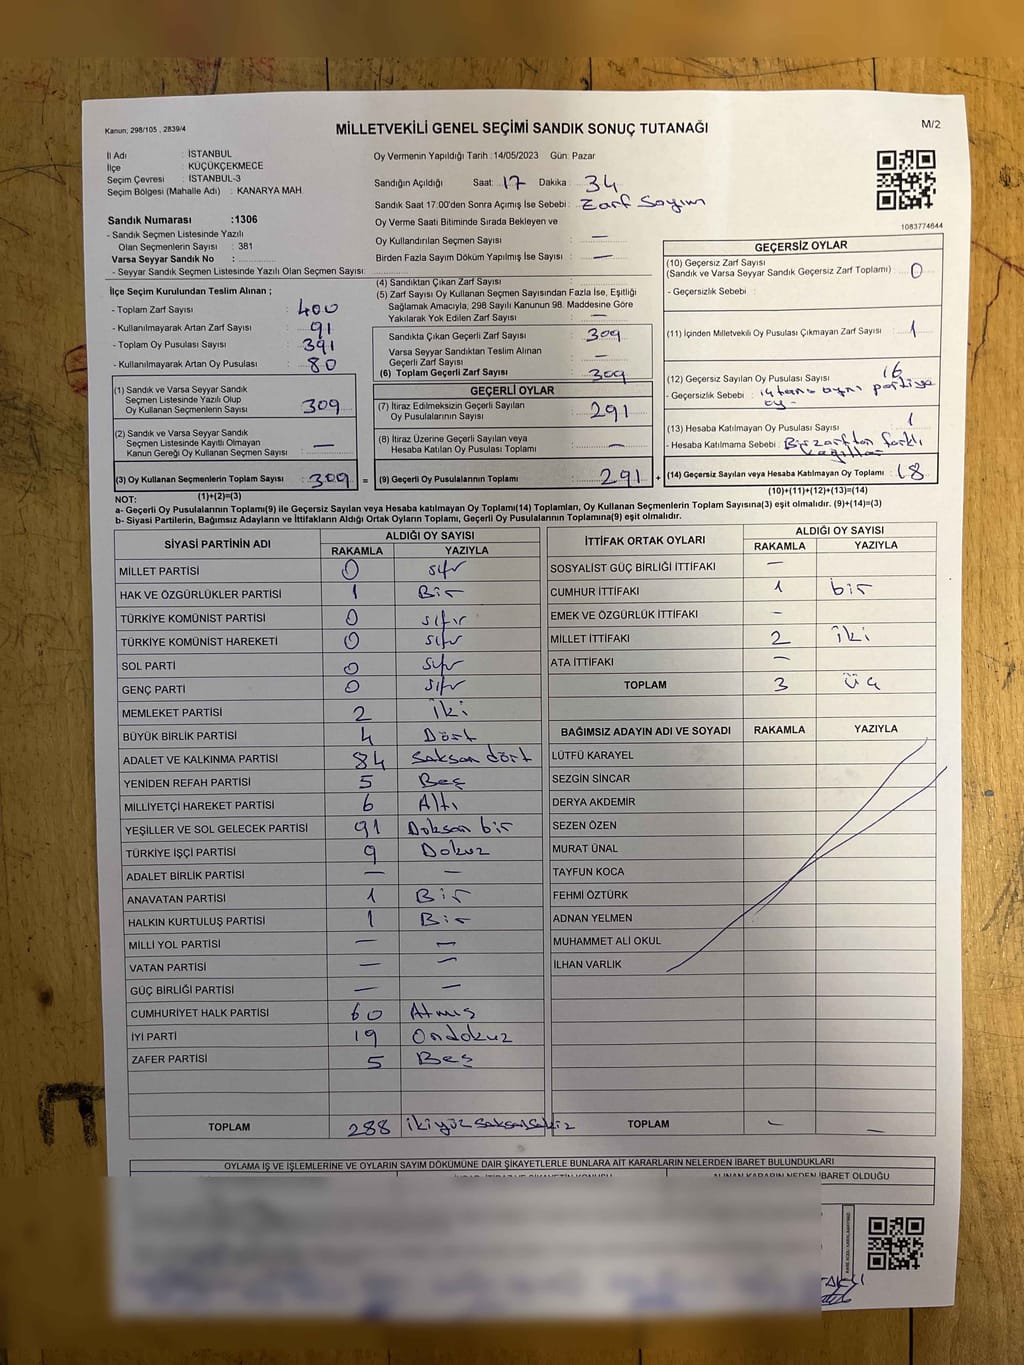 Kanun; 298/105 , 2839/4
MİLLETVEKİLİ GENEL SEÇİMİ SANDIK SONUÇ TUTANAĞI
M/2
İl Adı : İSTANBUL
İlçe : KÜÇÜKÇEKMECE
Seçim Çevresi : İSTANBUL-3
Seçim Bölgesi (Mahalle Adı) : KANARYA MAH.
Sandık Numarası :1306
- Sandık Seçmen Listesinde Yazılı
Olan Seçmenlerin Sayısı : 381
Varsa Seyyar Sandık No :
- Seyyar Sandık Seçmen Listesinde Yazılı Olan Seçmen Sayısı:
Oy Vermenin Yapıldığı Tarih :14/05/2023 Gün: Pazar
Sandığın Açıldığı Saat: 17 Dakika : 34
Sandık Saat 17.00'den Sonra Açımış İse Sebebi : Zarf Sayım
Oy Verme Saati Bitiminde Sırada Bekleyen ve
Oy Kullandırılan Seçmen Sayısı : —
Birden Fazla Sayım Döküm Yapılmış İse Sayısı : —
1083774644
İlçe Seçim Kurulundan Teslim Alınan ;
- Toplam Zarf Sayısı : 400
- Kullanılmayarak Artan Zarf Sayısı : 91
- Toplam Oy Pusulası Sayısı : 391
- Kullanılmayarak Artan Oy Pusulası : 80
(1) Sandık ve Varsa Seyyar Sandık
Seçmen Listesinde Yazılı Olup
Oy Kullanan Seçmenlerin Sayısı : 309
(2) Sandık ve Varsa Seyyar Sandık
Seçmen Listesinde Kayıtlı Olmayan
Kanun Gereği Oy Kullanan Seçmen Sayısı : —
(3) Oy Kullanan Seçmenlerin Toplam Sayısı : 309 =
(1)+(2)=(3)
(4) Sandıktan Çıkan Zarf Sayısı :
(5) Zarf Sayısı Oy Kullanan Seçmen Sayısından Fazla İse, Eşitliği
Sağlamak Amacıyla, 298 Sayılı Kanunun 98. Maddesine Göre
Yakılarak Yok Edilen Zarf Sayısı : —
Sandıkta Çıkan Geçerli Zarf Sayısı : 309
Varsa Seyyar Sandıktan Teslim Alınan
Geçerli Zarf Sayısı : —
(6) Toplam Geçerli Zarf Sayısı : 309
GEÇERLİ OYLAR
(7) İtiraz Edilmeksizin Geçerli Sayılan
Oy Pusulalarının Sayısı : 291
(8) İtiraz Üzerine Geçerli Sayılan veya
Hesaba Katılan Oy Pusulası Toplamı : —
(9) Geçerli Oy Pusulalarının Toplamı : 291 +
GEÇERSİZ OYLAR
(10) Geçersiz Zarf Sayısı
(Sandık ve Varsa Seyyar Sandık Geçersiz Zarf Toplamı) : 0
- Geçersizlik Sebebi :
(11) İçinden Milletvekili Oy Pusulası Çıkmayan Zarf Sayısı : 1
(12) Geçersiz Sayılan Oy Pusulası Sayısı : 16
- Geçersizlik Sebebi : 14 tane aynı partiye
oy-
(13) Hesaba Katılmayan Oy Pusulası Sayısı : 1
- Hesaba Katılmama Sebebi : Bir zarftan farklı
kağıtlar
(14) Geçersiz Sayılan veya Hesaba Katılmayan Oy Toplamı : 18
(10)+(11)+(12)+(13)=(14)
NOT:
a- Geçerli Oy Pusulaların Toplamı(9) ile Geçersiz Sayılan veya Hesaba katılmayan Oy Toplamı(14) Toplamları, Oy Kullanan Seçmenlerin Toplam Sayısına(3) eşit olmalıdır. (9)+(14)=(3)
b- Siyasi Partilerin, Bağımsız Adayların ve İttifakların Aldığı Ortak Oyların Toplamı, Geçerli Oy Pusulalarının Toplamına(9) eşit olmalıdır.
SİYASİ PARTİNİN ADI ALDIĞI OY SAYISI
RAKAMLA YAZIYLA
MİLLET PARTİSİ 0 sıfır
HAK VE ÖZGÜRLÜKLER PARTİSİ 1 Bir
TÜRKİYE KOMÜNİST PARTİSİ 0 sıfır
TÜRKİYE KOMÜNİST HAREKETİ 0 sıfır
SOL PARTİ 0 sıfır
GENÇ PARTİ 0 sıfır
MEMLEKET PARTİSİ 2 İki
BÜYÜK BİRLİK PARTİSİ 4 Dört
ADALET VE KALKINMA PARTİSİ 84 saksan dört
YENİDEN REFAH PARTİSİ 5 Beş
MİLLİYETÇİ HAREKET PARTİSİ 6 Altı
YEŞİLLER VE SOL GELECEK PARTİSİ 91 Doksan bir
TÜRKİYE İŞÇİ PARTİSİ 9 Dokuz
ADALET BİRLİK PARTİSİ — —
ANAVATAN PARTİSİ 1 Bir
HALKIN KURTULUŞ PARTİSİ 1 Bir
MİLLİ YOL PARTİSİ — —
VATAN PARTİSİ — —
GÜÇ BİRLİĞİ PARTİSİ — —
CUMHURİYET HALK PARTİSİ 60 Atmış
İYİ PARTİ 19 Ondokuz
ZAFER PARTİSİ 5 Beş
TOPLAM 288 ikiyüz saksan sekiz
İTTİFAK ORTAK OYLARI ALDIĞI OY SAYISI
RAKAMLA YAZIYLA
SOSYALİST GÜÇ BİRLİĞİ İTTİFAKI —
CUMHUR İTTİFAKI 1 bir
EMEK VE ÖZGÜRLÜK İTTİFAKI —
MİLLET İTTİFAKI 2 İki
ATA İTTİFAKI —
TOPLAM 3 Üç
BAĞIMSIZ ADAYIN ADI VE SOYADI RAKAMLA YAZIYLA
LÜTFÜ KARAYEL
SEZGİN SİNCAR
DERYA AKDEMİR
SEZEN ÖZEN
MURAT ÜNAL
TAYFUN KOCA
FEHMİ ÖZTÜRK
ADNAN YELMEN
MUHAMMET ALİ OKUL
İLHAN VARLIK
TOPLAM — —
OYLAMA İŞ VE İŞLEMLERİNE VE OYLARIN SAYIM DÖKÜMÜNE DAİR ŞİKAYETLERLE BUNLARA AİT KARARLARIN NELERDEN İBARET BULUNDUKLARI
ALINAN KARARIN NEDEN İBARET OLDUĞU